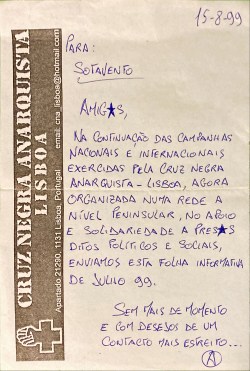 15-8-99
PARA:
SOTAVENTO
AMIG★S,
NA CONTINUAÇÃO DAS CAMPANHAS
NACIONAIS E INTERNACIONAIS
EXERCIDAS PELA CRUZ NEGRA
ANARQUISTA-LISBOA, AGORA
ORGANIZADA NUMA REDE A
NÍVEL PENINSULAR, NO APOIO
E SOLIDARIEDADE A PRES★S
DITOS POLÍTICOS E SOCIAIS,
ENVIAMOS ESTA FOLHA INFORMATIVA
DE JULHO 99.
SEM MAIS DE MOMENTO
E COM DESEJOS DE UM
CONTACTO MAIS ESTREITO...
A
CRUZ NEGRA ANARQUISTA
LISBOA
Apartado 21290, 1131 Lisboa, Portugal email: cna_lisboa@hotmail.com